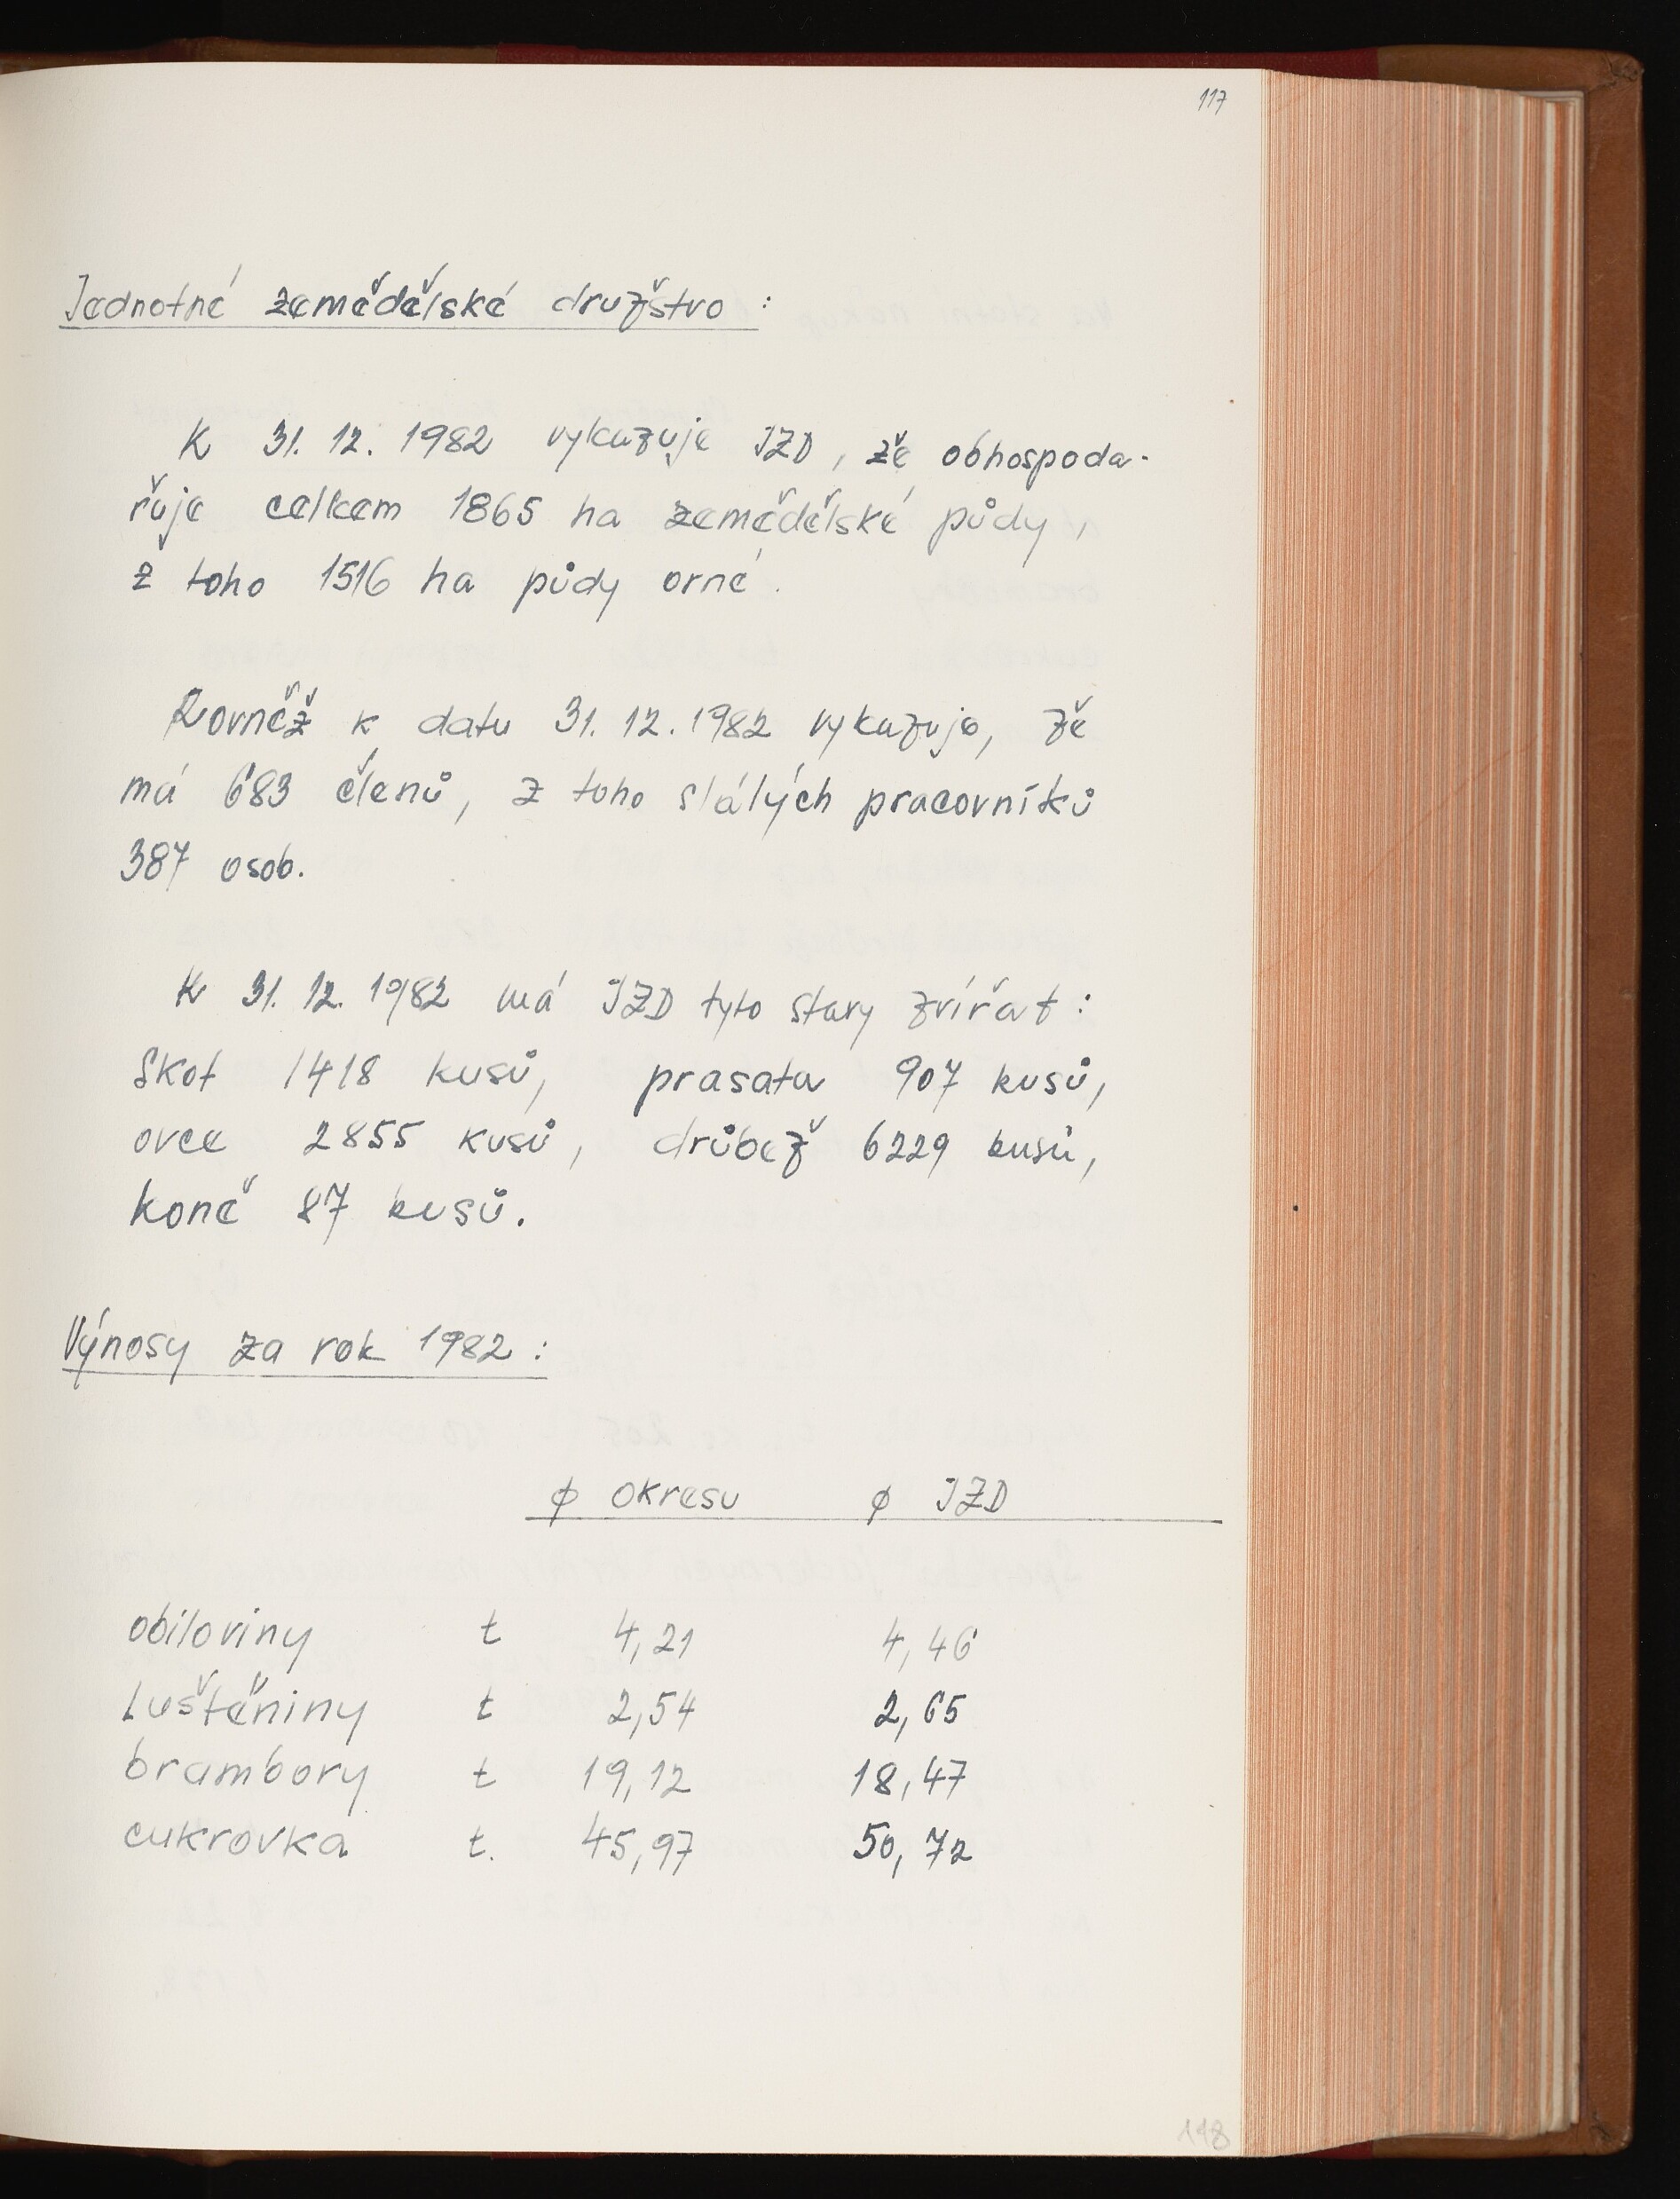 117
Jednotné zemědělské družstvo :
K 31. 12. 1982 vykazuje JZD, že obhospoda-
řuje celkem 1865 ha zemědělské půdy,
z toho 1516 ha půdy orné.
Rovněž k datu 31. 12. 1982 vykazuje, že
má 683 členů, z toho stálých pracovníků
387 osob.
K 31. 12. 1982 má JZD tyto stavy zvířat :
Skot 1418 kusů, prasata 907 kusů,
ovce 2855 kusů, drůbež 6229 kusů,
koně 87 kusů.
Výnosy za rok 1982 :
ϕ okresu ϕ JZD
obiloviny t 4,21 4,46
luštěniny t 2,54 2,65
brambory t 19,12 18,47
cukrovka t. 45,97 50,72
118